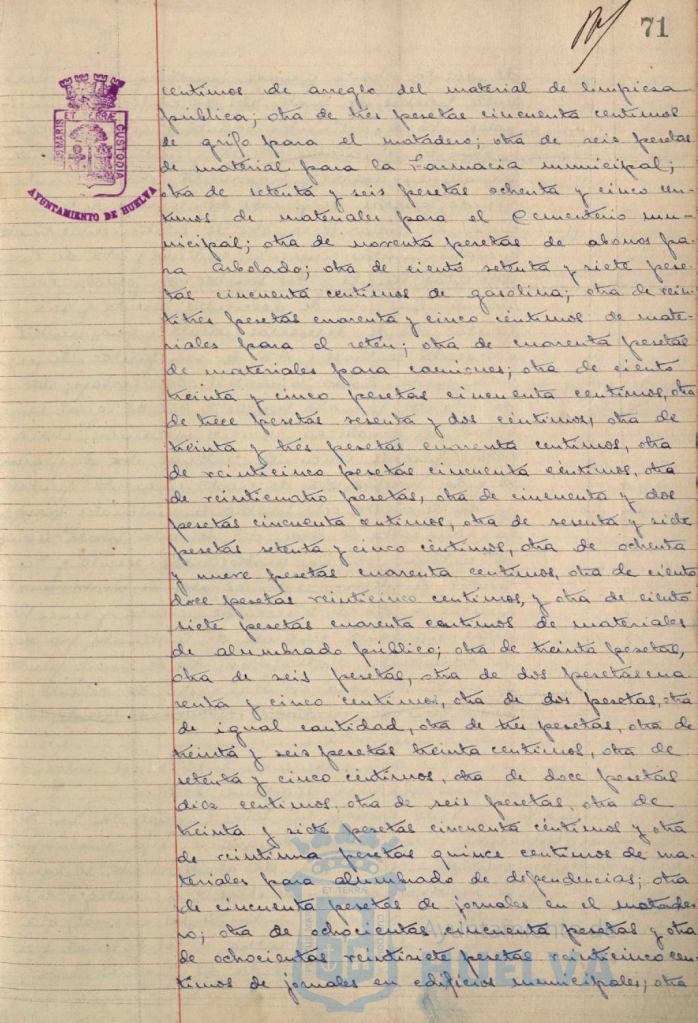 71
PORTUS MARIS ET TERRÆ CUSTODIA
AYUNTAMIENTO DE HUELVA
centimos de arreglo del material de limpiesa
pública; otra de tres pesetas cincuenta centimos
de grifo para el matadero; otra de seis pesetas
de material para la Farmacia municipal;
otra de setenta y seis pesetas ochenta y cinco cen-
timos de materiales para el Cementerio mu-
nicipal; otra de noventa pesetas de abonos pa-
ra arbolado; otra de ciento setenta y siete pese-
tas cincuenta centimos de gasolina; otra de vein-
titrés pesetas cuarenta y cinco centimos de mate-
riales para el retén; otra de cuarenta pesetas
de materiales para camiones; otra de ciento
treinta y cinco pesetas cincuenta centimos, otra
de trece pesetas sesenta y dos centimos, otra de
treinta y tres pesetas cuarenta centimos, otra
de veinticinco pesetas cincuenta centimos, otra
de veinticuatro pesetas, otra de cincuenta y dos
pesetas cincuenta centimos, otra de sesenta y siete
pesetas setenta y cinco centimos, otra de ochenta
y nueve pesetas cuarenta centimos, otra de ciento
doce pesetas veinticinco centimos, y otra de ciento
siete pesetas cuarenta centimos de materiales
de alumbrado público; otra de treinta pesetas,
otra de seis pesetas, otra de dos pesetas cua-
renta y cinco centimos, otra de dos pesetas, otra
de igual cantidad, otra de tres pesetas, otra de
treinta y seis pesetas treinta centimos, otra de
setenta y cinco centimos, otra de doce pesetas
diez centimos, otra de seis pesetas, otra de
treinta y siete pesetas cincuenta céntimos y otra
de veintiuna pesetas quince centimos de ma-
teriales para alumbrado de dependencias; otra
de cincuenta pesetas de jornales en el matade-
ro; otra de ochocientas cincuenta pesetas y otra
de ochocientas veintisiete pesetas veinticinco cen-
timos de jornales en edificios municipales; otra
Ayuntamiento de
HUELVA